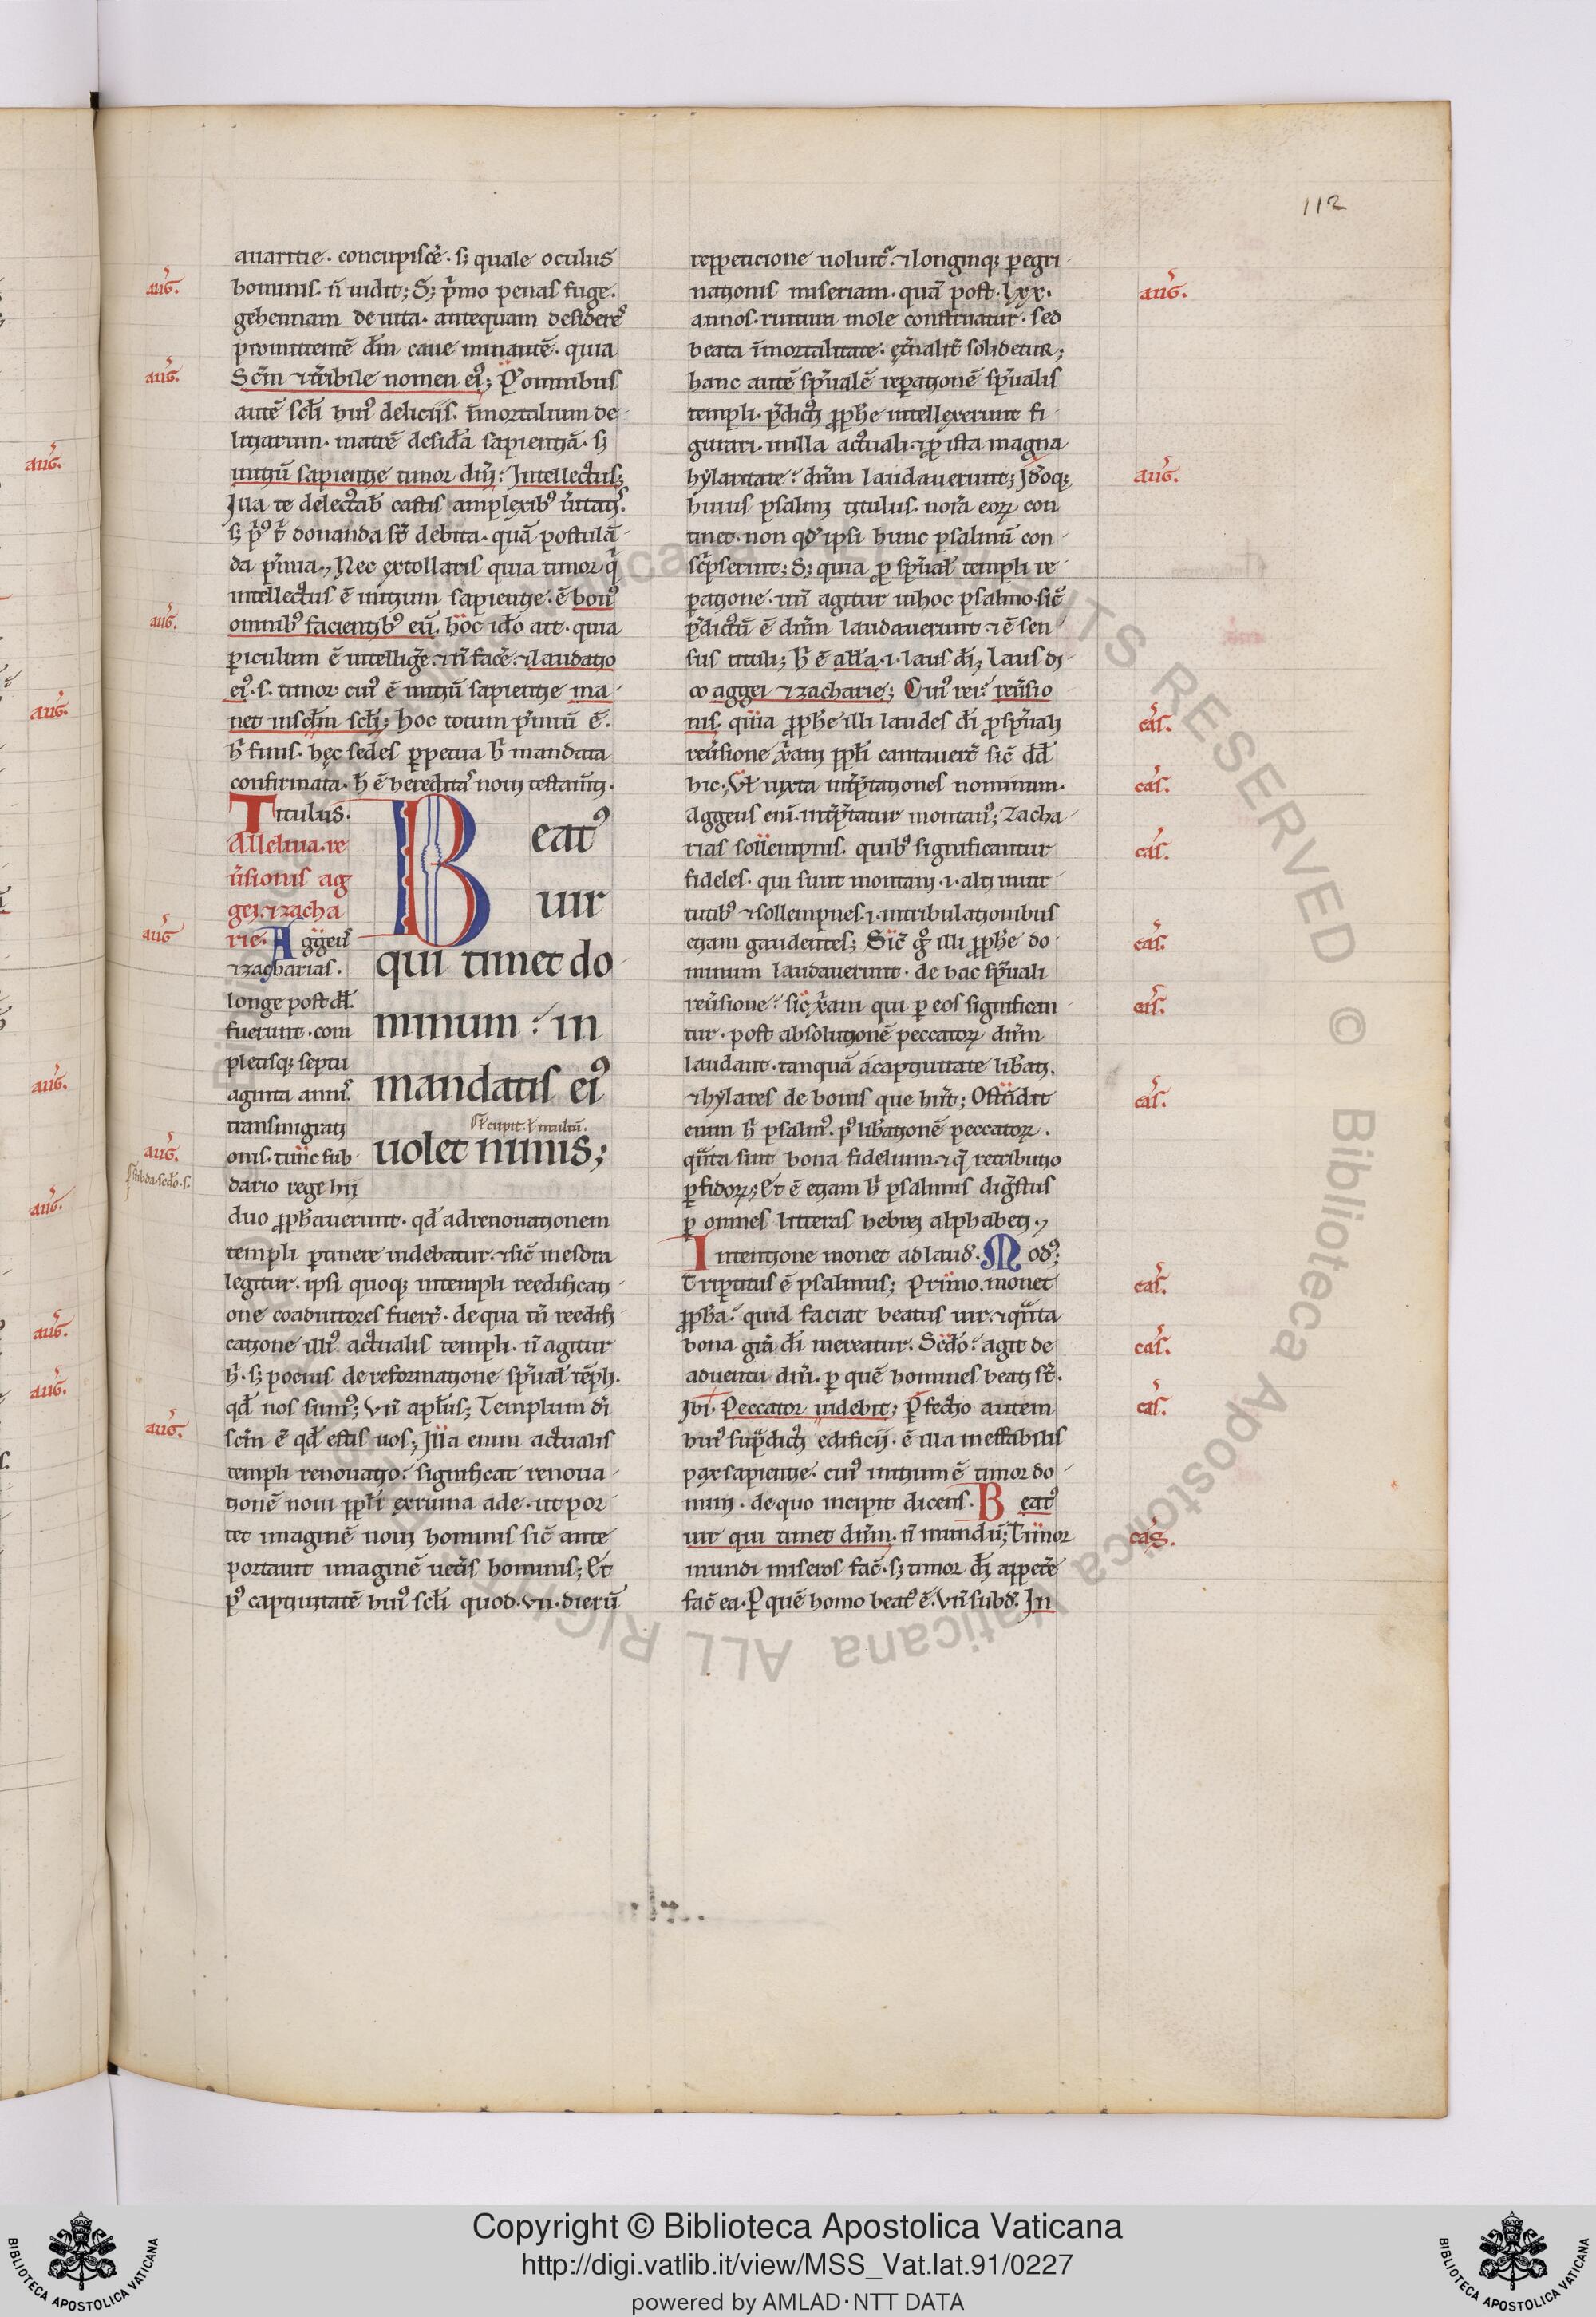 112
auaritie. concupiscē. sȝ quale oculus
hominis. n̄ uidit; Sȝ p̄mo penas fuge.
gehennam deuita. antequam desideres
promittentē dm̄ caue minantē. quia
Scm̄ ⁊ tribile nomen eiꝰ; P̄ omnibus
autē scli huiꝰ deliciis. īmortalium de-
litiarum. matrē desid̄a sapientiā. sȝ
initiū sapientie timor dn̄i: Intellectus;
Illa te delectab̄ castis amplexibꝰ ueritatis.
sȝ pꝰ t̄ donanda st̄ debita. quā postulā-
da p̄mia. Nec extollaris quia timor q̄
intellectus ē initium sapientie. ē bonꝰ
omnibꝰ facientibꝰ eū. hoc ido ait. quia
ꝑiculum ē intelliḡe. ⁊ n̄ facē. ⁊ laudatio
eiꝰ. s. timor cuiꝰ ē initiū sapientie ma-
net insclm̄ scli; hoc totum p̄miū ē.
h̄ finis. hęc sedes ꝑpetua h̄ mandata
confirmata. h̄ ē hereditas noui testam̄ti.
Titulus.
Alleluia. re
u̅sionis ag
gei. ⁊ zacha
rie. Aggeus
⁊ zacharias.
longe post dd̄.
fuerunt. com
pletisqȝ septu
aginta annis.
transmigrati
onis. tunc sub
dario rege hii
Beatꝰ
uir
qui timet do
minum: in
mandatis eiꝰ
uolet nimis;
duo ꝓph̄auerunt. qd̄ adrenouationem
templi ꝑtinere uidebatur. ⁊ sic̄ inesdra
legitur. ipsi quoqȝ intempli reedificati-
one coadiutores fuert̄. dequa tn̄ reedifi
catione illiꝰ actualis templi. n̄ agitur
h̄. sȝ pocius de reformatione sp̄ual̄ tēpli.
qd̄ nos sumꝰ; Vn̄ apl̄us; Templum di
scm̄ ē qd̄ estis uos; Illa enim actualis
templi renouatio: significat renoua-
tionē noui ppl̄i exruina ade. ut por
tet imaginē noui hominis sic̄ ante
portauit imaginē uet̄is hominis; Et
pꝰ captiuitatē huiꝰ scli quod. vii. dierū
reppeticione uoluit̄. ⁊ longinqȝ ꝑegri-
nationis miseriam. quā post. lxx.
annos. ruitura mole construatur. sed
beata īmortalitate. et̄nalit̄ solidetur;
hanc autē sp̄ualē reꝑationē sp̄ualis
templi. p̄dicti ꝓph̄e intellexerunt fi-
gurari. in illa actuali. ⁊ ꝓ ista magna
hylaritate: dn̄m laudauerunt; Id̄oqȝ
huius psalmi titulus. noīa eorꝝ con
tinet. non qd̄ ipsi hunc psalmū con-
scp̄serint; Sȝ quia ꝓ sp̄ual̄ templi re-
ꝑatione. un̄ agitur inhoc psalmo. sic̄
p̄dictū ē dn̄m laudauerunt ⁊ ē sen-
sus tituli; h̄ ē all̄a. i. laus di, laus di-
co aggei ⁊ zacharie; Cuiꝰ rei: reu̅sio
nis. quia ꝓph̄e illi laudes di ꝓ sp̄uali
reu̅sione xp̄ani ppl̄i cantauer̄t sic̄ dd̄
hic. Vl̄ iuxta int̄p̄tationes nominum.
Aggeus eni. int̄p̄tatur montanꝰ; Zacha-
rias sollempnis. quibꝰ significantur
fideles. qui sunt montani. i. alti inuir
tutibꝰ ⁊ sollempnes. i. intribulationibus
etiam gaudentes; Sic̄ g̊ illi ꝓph̄e do-
minum laudauerunt. de hac sp̄uali
reu̅sione: sic xp̄iani qui ꝑ eos significan-
tur. post absolutionē peccatorꝝ dn̄m
laudant. tanquā acaptiuitate lib̄ati,
⁊ hylares de bonis que hn̄t; Ostendit
enim h̄ psalmꝰ. pꝰ lib̄ationē peccatorꝝ.
qn̄ta sint bona fidelium. ⁊ q̄ retributio
ꝑfidorꝝ; Et ē etiam h̄ psalmus digestus
ꝑ omnes litteras hebrei alphabeti.
Intentione monet ad laud̄. Modꝰ:
Triꝑtitus ē psalmus; Primo. monet
ꝓph̄a: quid faciat beatus uir. ⁊ qn̄ta
bona grā di mereatur. Scdo: agit de
aduentu dn̄i. ꝑ quē homines beati st̄.
Ibi. Peccator uidebit; P̄fectio autem
huiꝰ sup̄dicti edificii. ē illa ineffabilis
pax sapientie. cuiꝰ initium ē timor do-
mini. dequo incipit dicens. Beatꝰ
uir qui timet dn̄m. n̄ mundū; Timor
mundi miseros fac̄. sȝ timor di appetē
fac̄ ea. ꝑ quē homo beatꝰ ē. Vn̄ subd̄. In
aug.
aug.
aug.
aug
aug.
aug.
aug.
aug.
cas.
cas.
cas.
cas.
cas.
cas.
cas.
cas.
cas.
cas.
aug.
aug.
aug.
aug.
aug.
aug.
Biblioteca Apostolica Vaticana ALL RIGHTS RESERVED ©
Copyright © Biblioteca Apostolica Vaticana
http://digi.vatlib.it/view/MSS_Vat.lat.91/0227
powered by AMLAD·NTT DATA
BIBLIOTECA APOSTOLICA VATICANA
BIBLIOTECA APOSTOLICA VATICANA